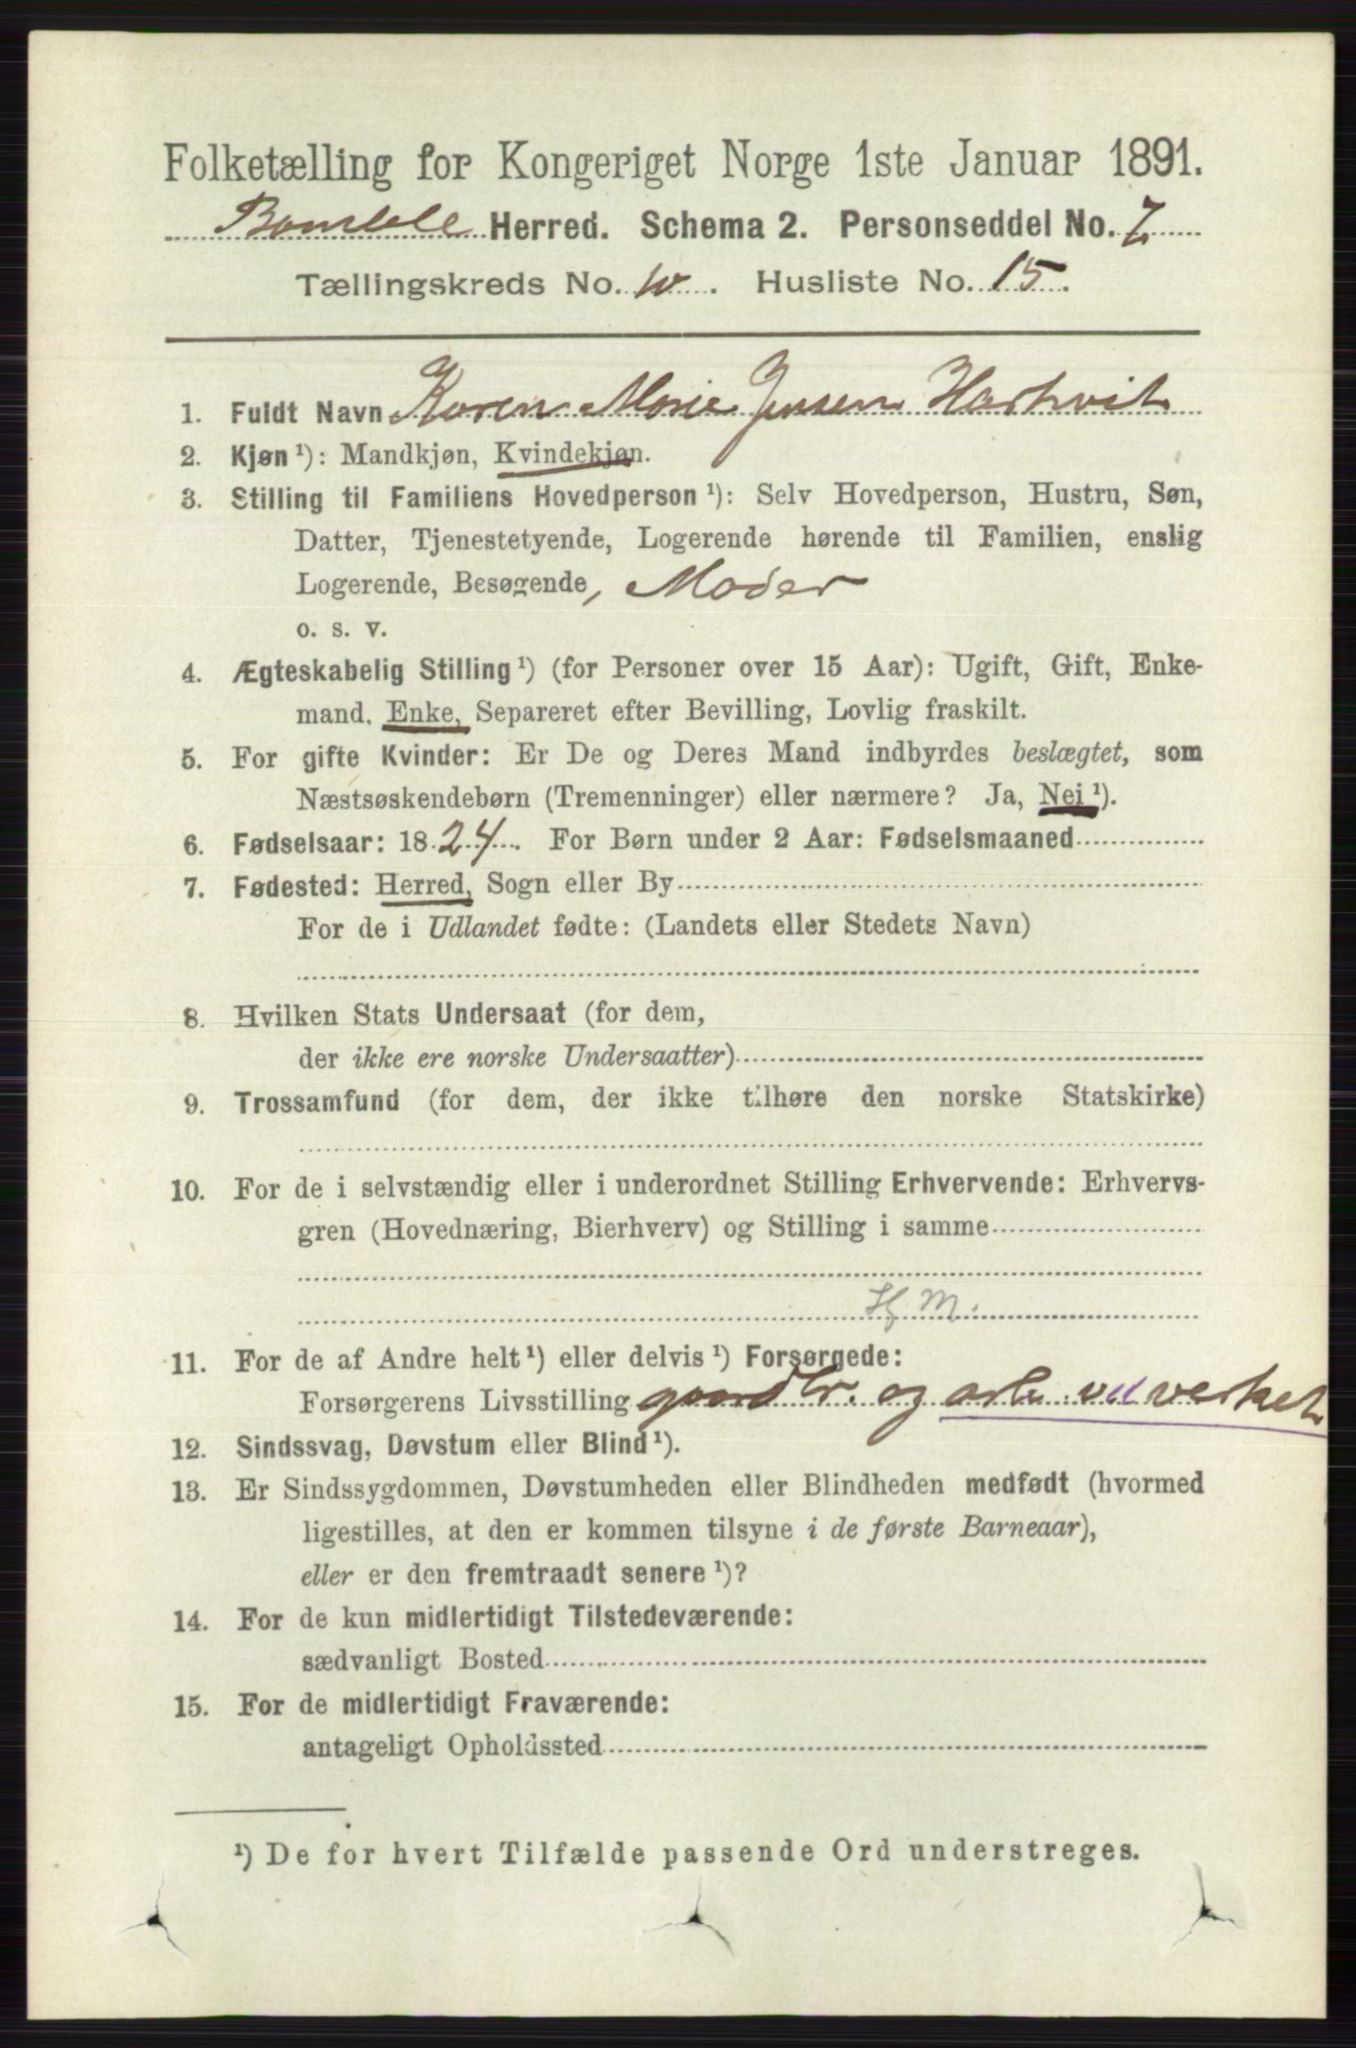 Folketælling for Kongeriget Norge 1ste Januar 1891.
Bamble Herred. Schema 2. Personseddel No. 7
Tællingskreds No. 10. Husliste No. 15.
1. Fuldt Navn Karen Marie Jensen Hartvit
2. Kjøn ¹): Mandkjøn, Kvindekjøn.
3. Stilling til Familiens Hovedperson ¹): Selv Hovedperson, Hustru, Søn,
Datter, Tjenestetyende, Logerende hørende til Familien, enslig
Logerende, Besøgende, Moder
o. s. v.
4. Ægteskabelig Stilling ¹) (for Personer over 15 Aar): Ugift, Gift, Enke-
mand, Enke, Separeret efter Bevilling, Lovlig fraskilt.
5. For gifte Kvinder: Er De og Deres Mand indbyrdes beslægtet, som
Næstsøskendebørn (Tremenninger) eller nærmere? Ja, Nei ¹).
6. Fødselsaar: 1824. For Børn under 2 Aar: Fødselsmaaned
7. Fødested: Herred, Sogn eller By
For de i Udlandet fødte: (Landets eller Stedets Navn)
8. Hvilken Stats Undersaat (for dem,
der ikke ere norske Undersaatter)
9. Trossamfund (for dem, der ikke tilhøre den norske Statskirke)
10. For de i selvstændig eller i underordnet Stilling Erhvervende: Erhvervs-
gren (Hovednæring, Bierhverv) og Stilling i samme
11. For de af Andre helt ¹) eller delvis ¹) Forsørgede:
Forsørgerens Livsstilling gaardbr. og arb. ved verket
12. Sindssvag, Døvstum eller Blind ¹).
13. Er Sindssygdommen, Døvstumheden eller Blindheden medfødt (hvormed
ligestilles, at den er kommen tilsyne i de første Barneaar),
eller er den fremtraadt senere ¹)?
14. For de kun midlertidigt Tilstedeværende:
sædvanligt Bosted
15. For de midlertidigt Fraværende:
antageligt Opholdssted
¹) De for hvert Tilfælde passende Ord understreges.